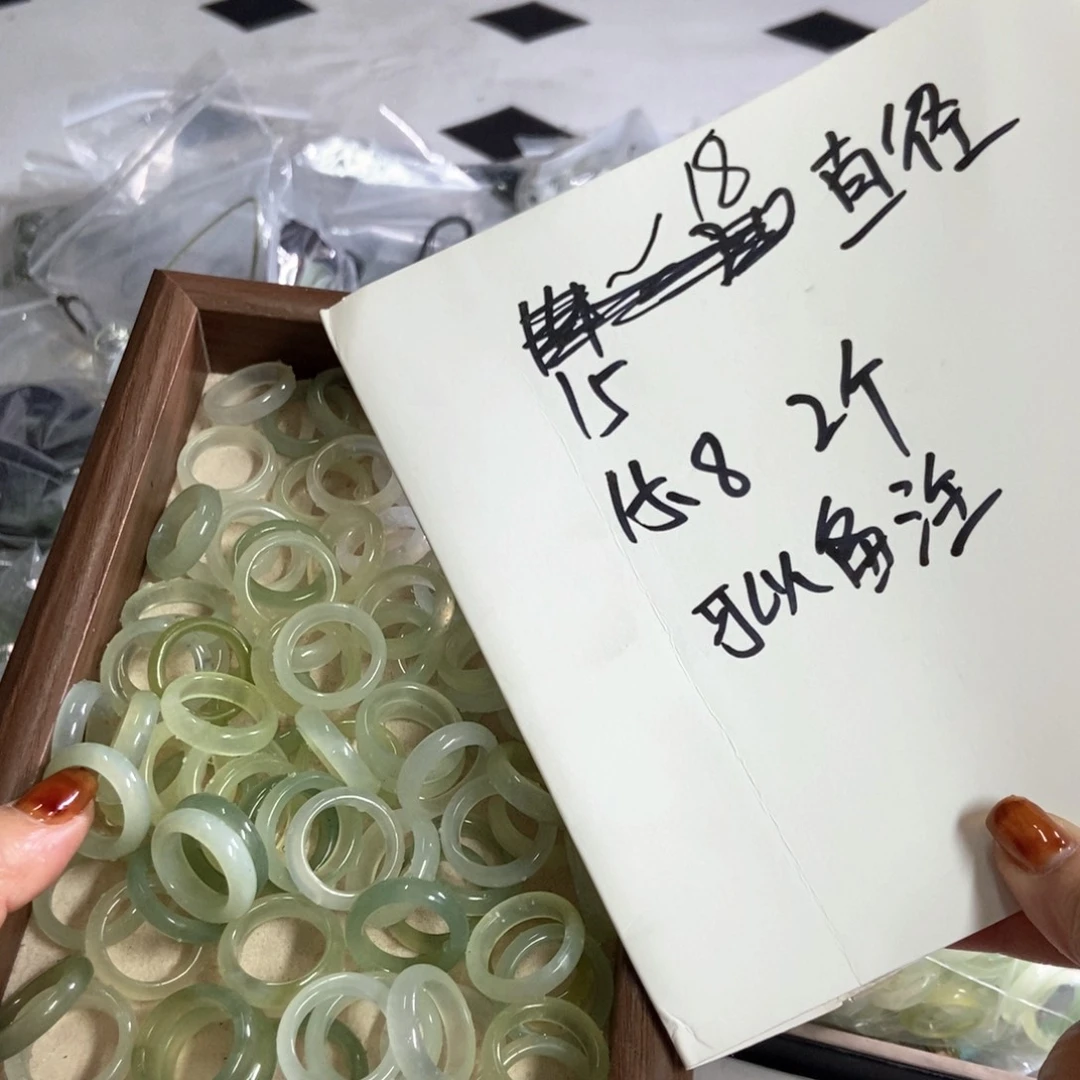 15~18 直径
15.8 2个
可以备注